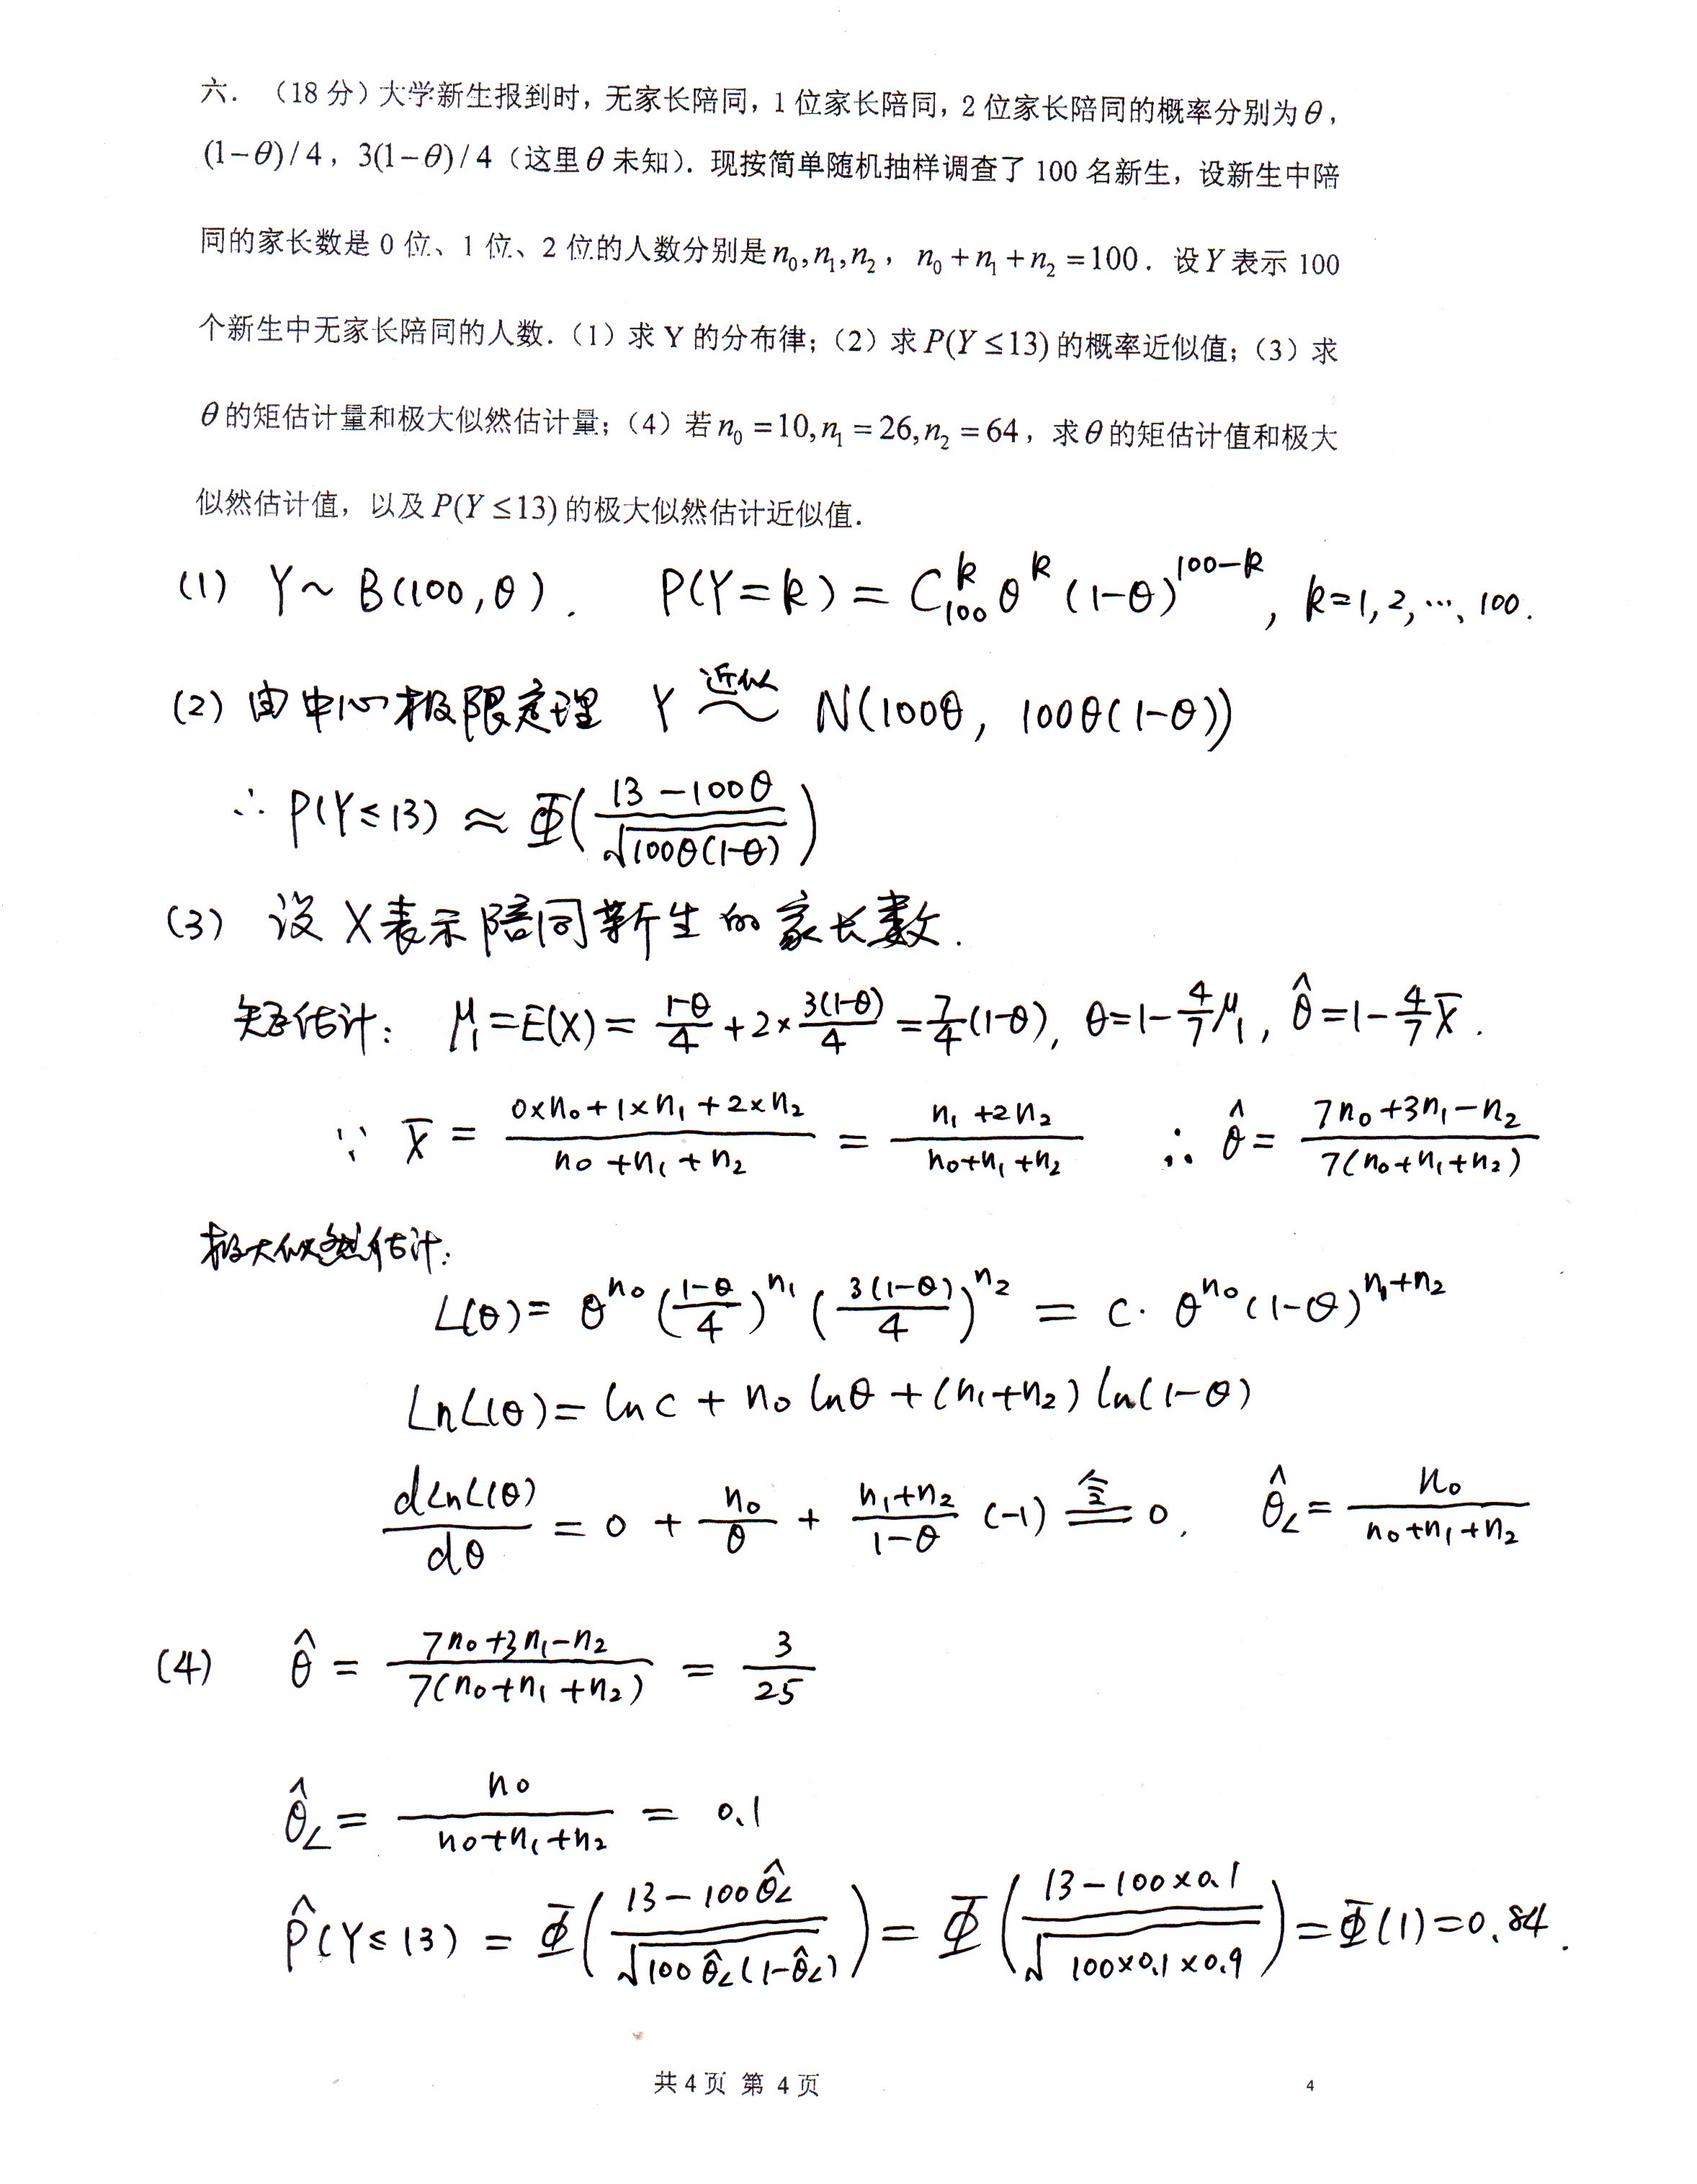 六. （18 分）大学新生报到时，无家长陪同，1 位家长陪同，2 位家长陪同的概率分别为θ，
(1−θ)/4，3(1−θ)/4（这里θ未知）. 现按简单随机抽样调查了 100 名新生，设新生中陪
同的家长数是 0 位、1 位、2 位的人数分别是n₀,n₁,n₂， n₀+n₁+n₂=100. 设Y表示 100
个新生中无家长陪同的人数.（1）求 Y 的分布律;（2）求P(Y≤13)的概率近似值;（3）求
θ的矩估计量和极大似然估计量;（4）若n₀=10,n₁=26,n₂=64，求θ的矩估计值和极大
似然估计值，以及P(Y≤13)的极大似然估计近似值.
(1) Y~B(100,θ). P(Y=k)=C₁₀₀ᵏθᵏ(1-θ)¹⁰⁰⁻ᵏ, k=1,2,…,100.
(2) 由中心极限定理 Y 近似~ N(100θ, 100θ(1-θ))
∴ P(Y≤13) ≈ Φ((13-100θ)/√(100θ(1-θ)))
(3) 设 X表示陪同新生的家长数.
矩估计: μ₁=E(X)= (1-θ)/4 + 2×3(1-θ)/4 = 7/4(1-θ), θ=1-4/7μ₁, θ̂=1-4/7X̄.
∵ X̄ = (0×n₀+1×n₁+2×n₂)/(n₀+n₁+n₂) = (n₁+2n₂)/(n₀+n₁+n₂) ∴ θ̂= (7n₀+3n₁-n₂)/(7(n₀+n₁+n₂))
极大似然估计:
L(θ)= θⁿ⁰((1-θ)/4)ⁿ¹(3(1-θ)/4)ⁿ² = C·θⁿ⁰(1-θ)ⁿ¹⁺ⁿ²
LnL(θ)= ln C + n₀ lnθ + (n₁+n₂) ln(1-θ)
dLnL(θ)/dθ = 0 + n₀/θ + (n₁+n₂)/(1-θ) (-1) 令= 0, θ̂_L = n₀/(n₀+n₁+n₂)
(4) θ̂ = (7n₀+3n₁-n₂)/(7(n₀+n₁+n₂)) = 3/25
θ̂_L = n₀/(n₀+n₁+n₂) = 0.1
P̂(Y≤13) = Φ((13-100θ̂_L)/√(100θ̂_L(1-θ̂_L))) = Φ((13-100×0.1)/√(100×0.1×0.9)) = Φ(1)=0.84.
共 4 页 第 4 页 4